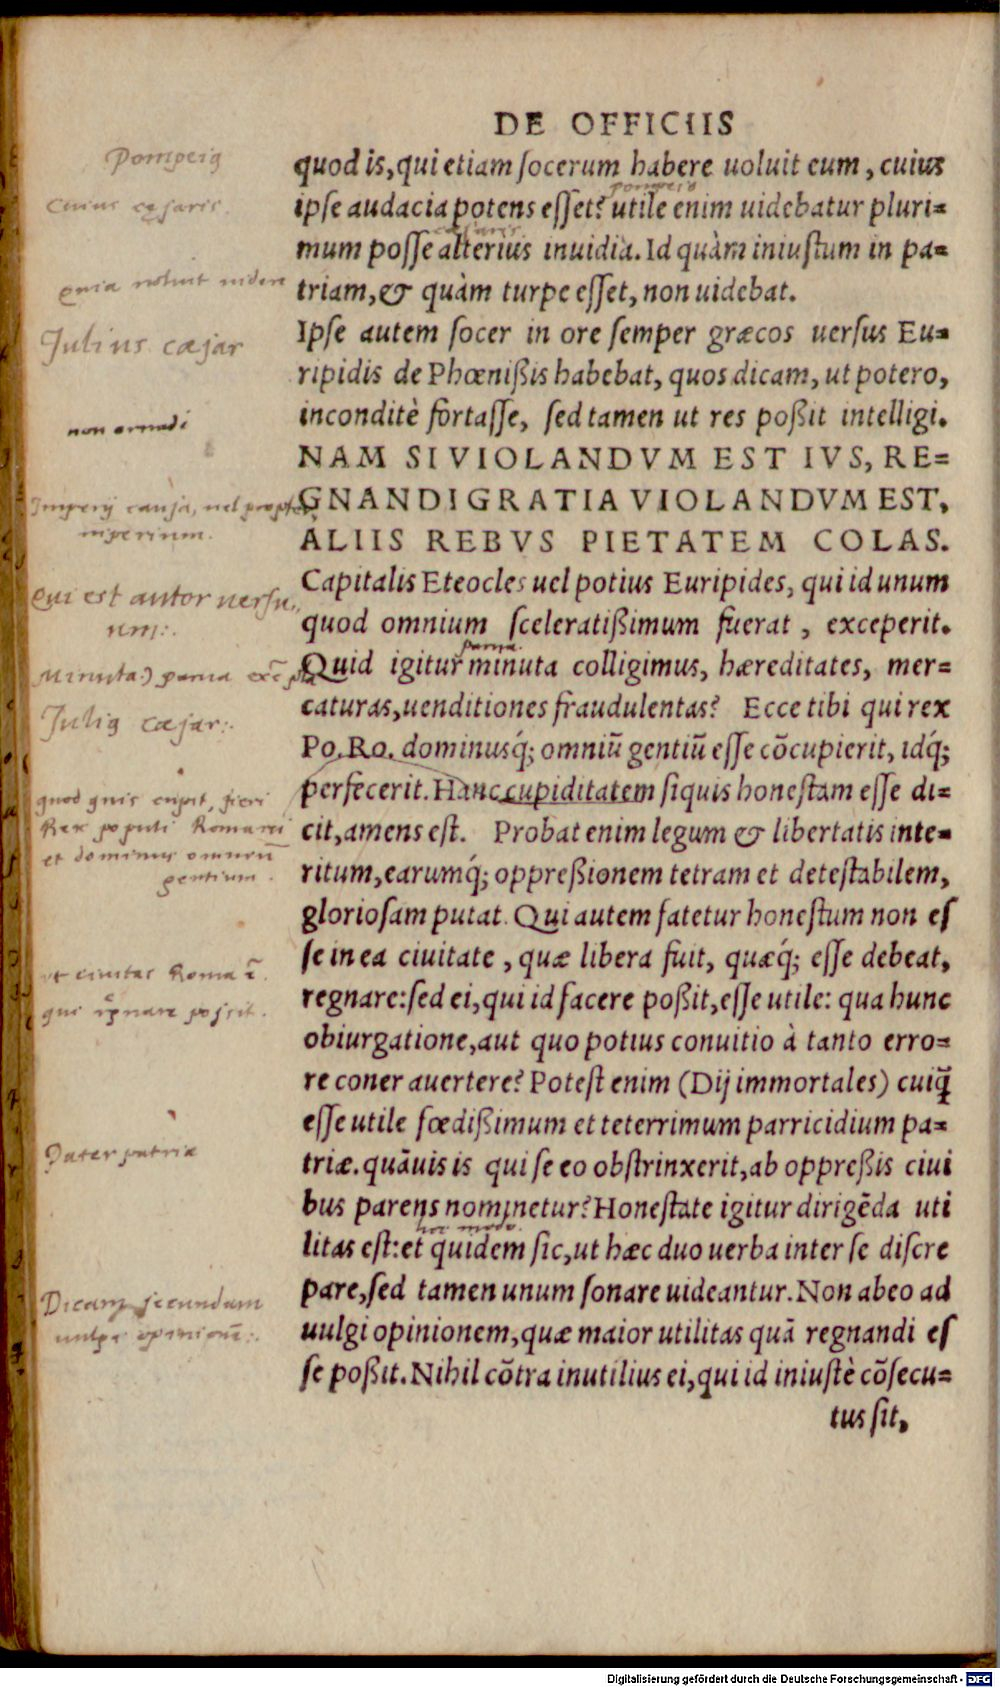 DE OFFICIIS
quod is, qui etiam socerum habere uoluit eum, cuius
ipse audacia potens esset? utile enim uidebatur pluri=
mum posse alterius inuidia. Id quàm iniustum in pa=
triam, & quàm turpe esset, non uidebat.
Ipse autem socer in ore semper græcos uersus Eu=
ripidis de Phœnißis habebat, quos dicam, ut potero,
inconditè fortasse, sed tamen ut res poßit intelligi.
NAM SI VIOLANDVM EST IVS, RE=
GNANDI GRATIA VIOLANDVM EST,
ALIIS REBVS PIETATEM COLAS.
Capitalis Eteocles uel potius Euripides, qui id unum
quod omnium sceleratißimum fuerat, exceperit.
Quid igitur minuta colligimus, hæreditates, mer=
caturas, uenditiones fraudulentas? Ecce tibi qui rex
Po. Ro. dominusq́; omniū gentiū esse cōcupierit, idq́;
perfecerit. Hanc cupiditatem siquis honestam esse di=
cit, amens est. Probat enim legum & libertatis inte=
ritum, earumq́; oppreßionem tetram et detestabilem,
gloriosam putat. Qui autem fatetur honestum non es
se in ea ciuitate, quæ libera fuit, quæq́; esse debeat,
regnare: sed ei, qui id facere poßit, esse utile: qua hunc
obiurgatione, aut quo potius conuitio à tanto erro=
re coner auertere? Potest enim (Dij immortales) cuiq̄
esse utile fœdißimum et teterrimum parricidium pa=
triæ. quāuis is qui se eo obstrinxerit, ab oppreßis ciui
bus parens nominetur? Honestate igitur dirigēda uti
litas est: et quidem sic, ut hæc duo uerba inter se discre
pare, sed tamen unum sonare uideantur. Non abeo ad
uulgi opinionem, quæ maior utilitas quā regnandi es
se poßit. Nihil cōtra inutilius ei, qui id iniustè cōsecu=
tus sit,
Pompeiꝰ
Cuius cęsaris.
quia noluit uidere
Julius cæsar
non ornadi
Imperij causa, uel propter
imperium.
Qui est autor uersu
um:.
Minuta:) parua
Juliꝰ cæsar:.
quod quis cupit, fieri
Rex populi Romani
et dominus omniū
gentium.
ut ciuitas Roma
possit.
Pater patriæ
Dicam secundum
uulgi opinionē:.
pompeio
cæsaris
parua.
hoc modo.
Digitalisierung gefördert durch die Deutsche Forschungsgemeinschaft - DFG